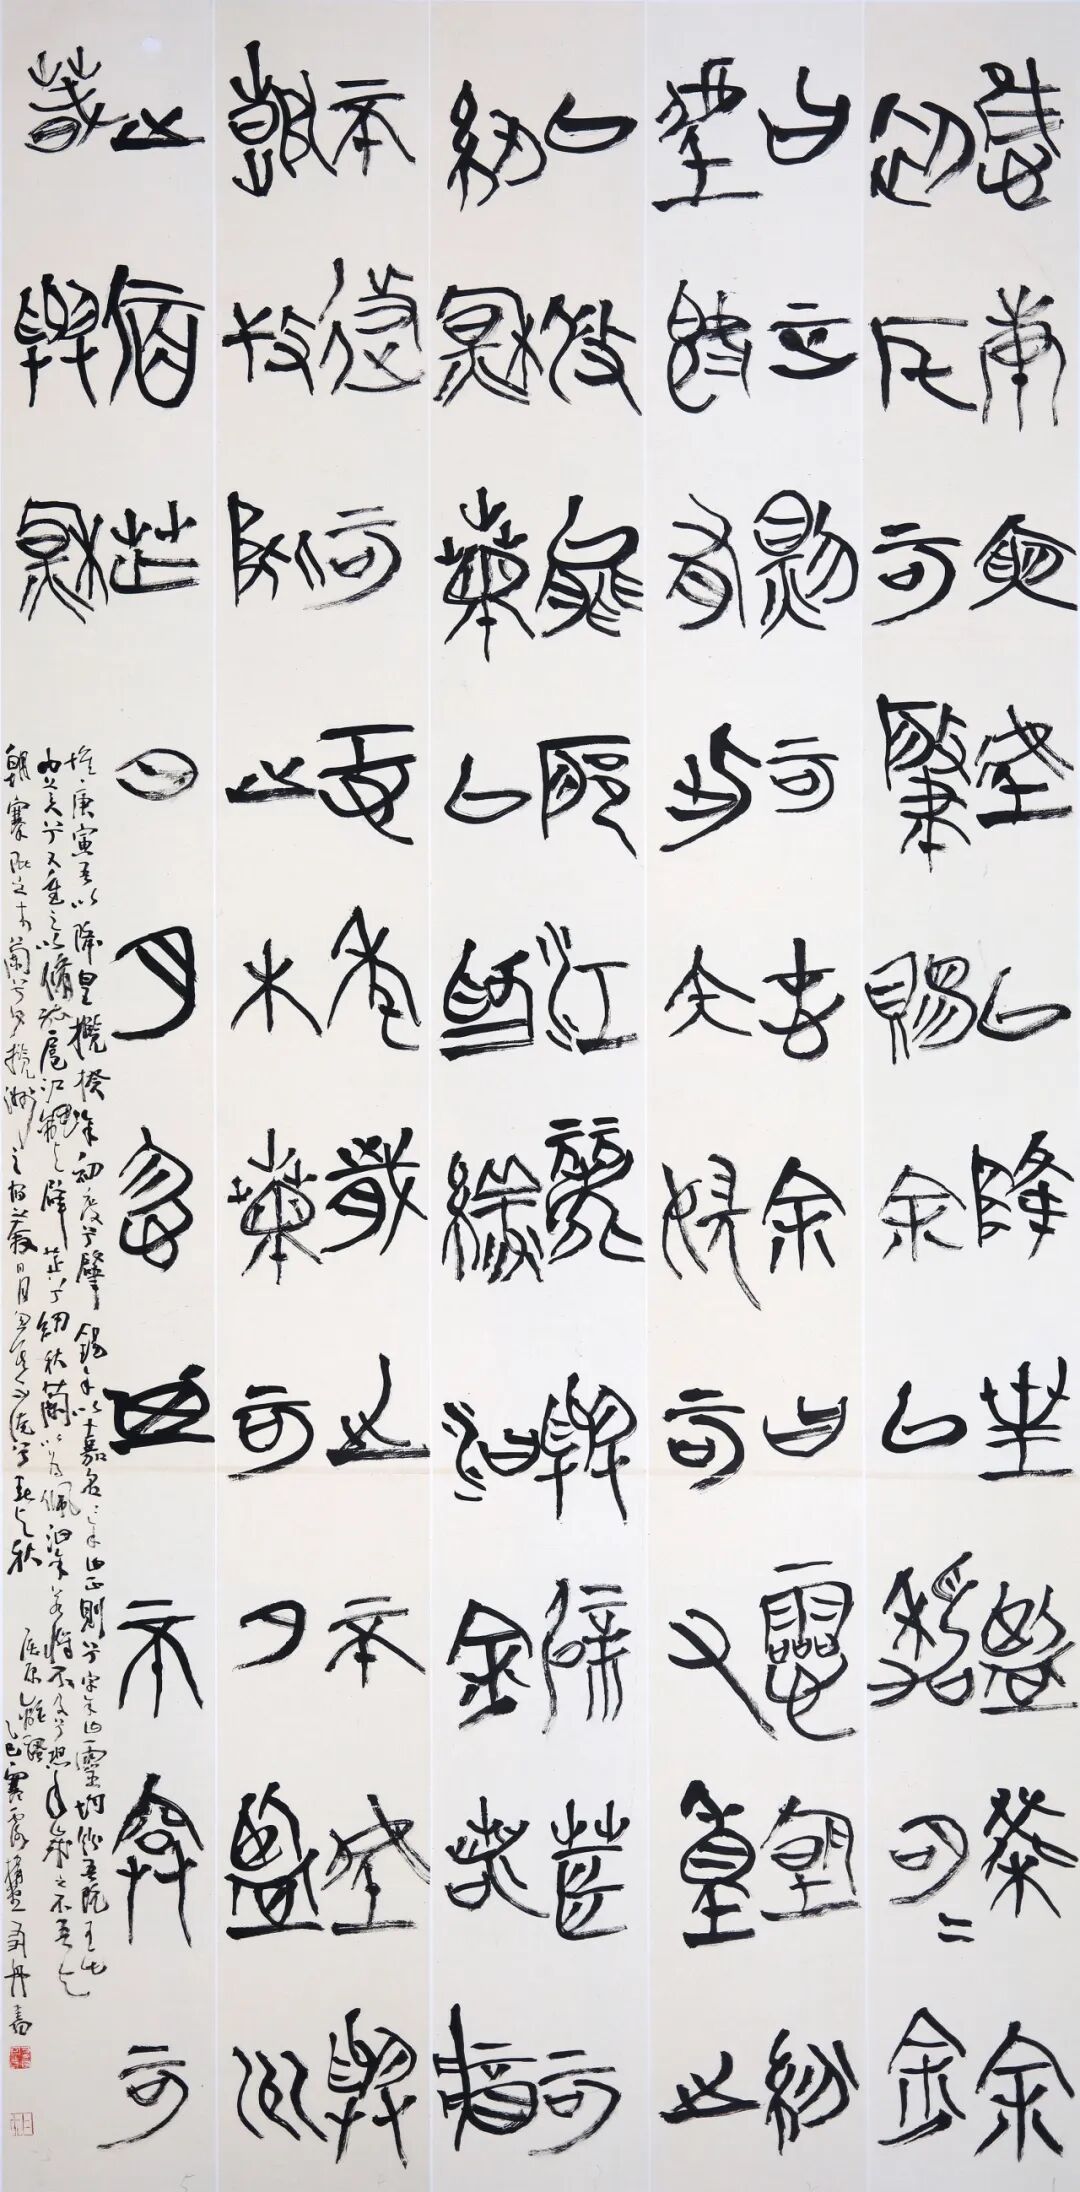 惟庚寅吾以降皇覽揆余
初度兮肇錫余以嘉名=余
曰正則兮字余曰靈均紛
吾既有此內美兮又重之
以修能扈江離與辟芷兮
紉秋蘭以為佩汩余若將
不及兮恐年歲之不吾與
朝搴阰之木蘭兮夕攬洲
之宿莽日月忽其不淹兮
春與秋
惟庚寅吾以降皇攬揆余初度兮肇錫余以嘉名=余曰正則兮字余曰靈均紛吾既有此
內美兮又重之以脩能扈江離與辟芷兮紉秋蘭以為佩汩余若將不及兮恐年歲之不吾與
朝搴阰之木蘭兮夕攬洲之宿莽日月忽其不淹兮春與秋 屈原離騷 乙巳寒露 丹書